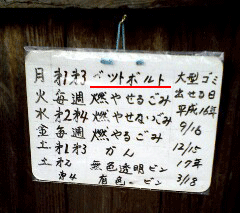 月 才1才3 ペットボルト 大型ゴミ
火 毎週 燃やせるごみ 出せる日
水 才2才4 燃やせないごみ 平成16年
金 毎週 燃やるごみ 9/16
土 才1才3 かん 12/15
土 才2 無色透明ビン 17年
才4 有色ービン 3/18